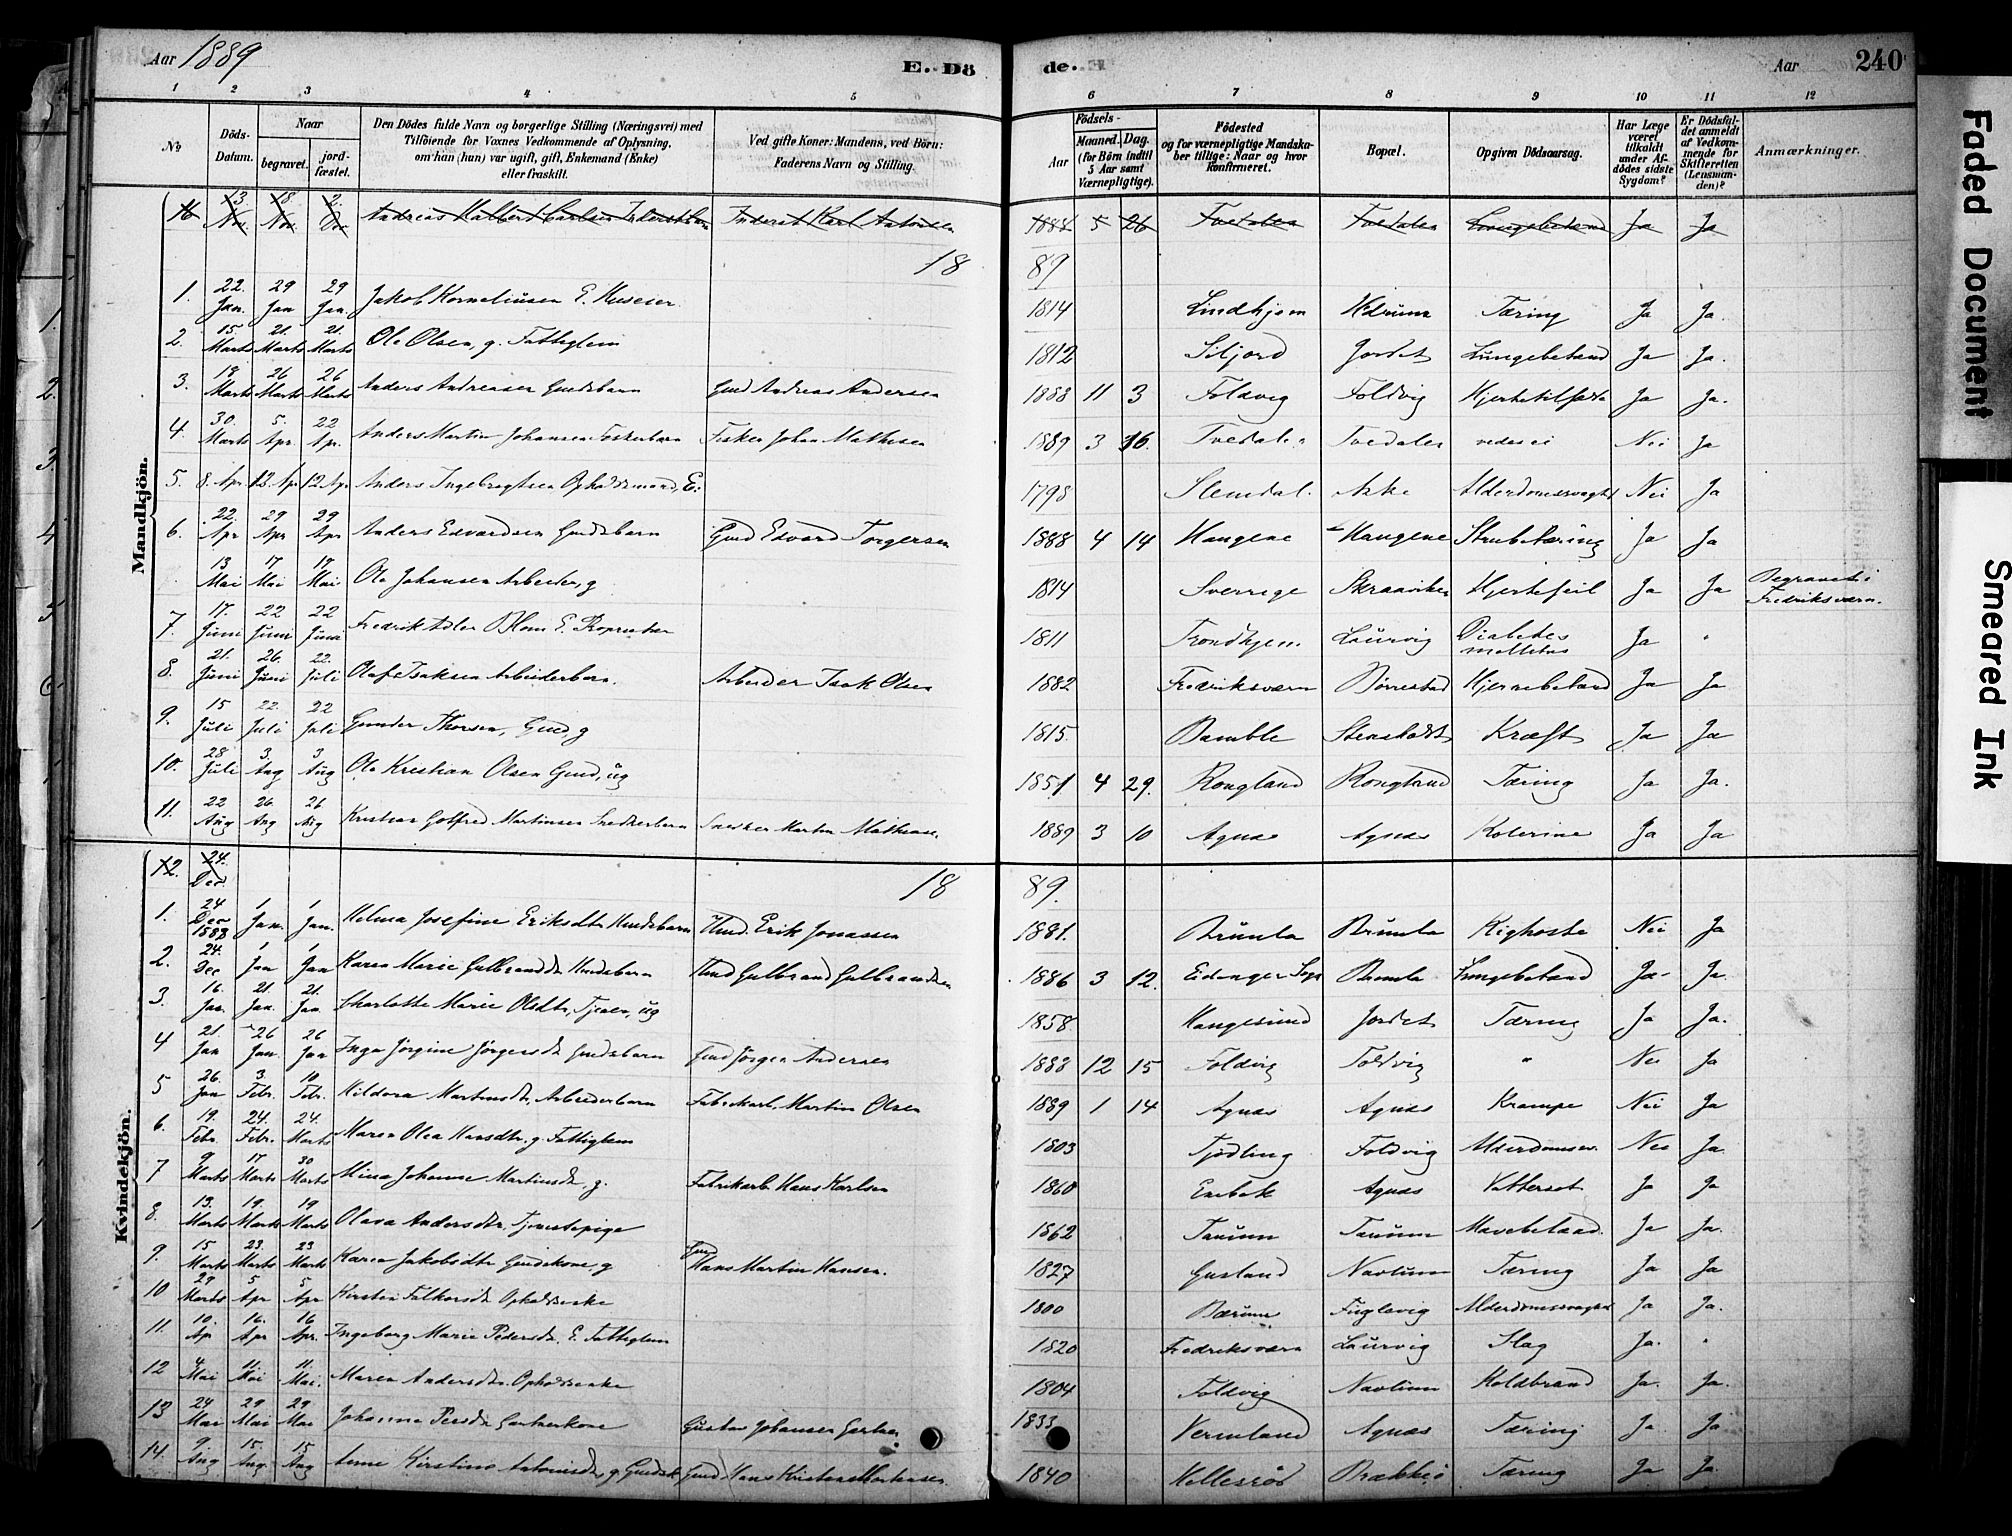 Aar 1889 E. Dö de. Aar 240
1 2 3 4 5 6 7 8 9 10 11 12
No Döds-Datum. Naar begravet. jord-fæstet. Den Dödes fulde Navn og borgerlige Stilling (Næringsvei) med Tilföiende for Voxnes Vedkommende af Oplysning, om han (hun) var ugift, gift, Enkemand (Enke) eller fraskilt. Ved gifte Koner: Mandens, ved Börn: Faderens Navn og Stilling. Födsels- Aar Maaned. Dag. (for Börn indtil 5 Aar samt Værnepligtige). Födested og for værnepligtige Mandskaber tillige: Naar og hvor Konfirmeret. Bopæl. Opgiven Dödsaarsag. Har Læge været tilkaldt under Afdödes sidste Sygdom? Er Dödsfaldet anmeldt af Vedkommende for Skifteretten (Lensmanden)? Anmærkninger.
Mandkjön.
16 13 Nov 18 Nov 2 Andreas Inderst Karl Antonsen 1888 5 26 Tvedalen Tvedalen Lungebetænd Ja Ja
18 89
1. 22. Jan 29 Jan 29 Jan. Jakob Korneliusen E. Huseier 1814 Lindhjem Tæring Ja Ja.
2. 15 Marts 21. Marts 21. Marts Ole Olsen, g. Fattiglem 1812 Siljord Jordet Lungebetænd Ja Ja.
3. 18 Marts 26 Marts 26 Marts Anders Andreasen Gmdsbarn Gmd Andreas Andersen 1888 11 3 Foldvig Foldvig Ja Ja.
4. 30. Marts 5. Apr. 22 Apr. Anders Martin Johansen Fiskerbarn Fisker Johan Mathisen 1889 3 16. Tvedalen Tvedalen vides ei Nei Ja
5. 8. Apr 12. Apr 12 Apr Anders Ingebregtsen Opholdsmand, E. 1798 Slemdal. Aske Alderdomssvaghed Nei Ja
6. 22. Apr 29 Apr 29 Apr Anders Edvardsen Gmdsbarn Gmd Edvard Torgersen 1888 4 14 Haugene Haugene Strubetæring Ja Ja
13 Mai 17 Mai 17 Mai Ole Johansen Arbeider, g 1814 Sverrige Hjertefeil Ja Ja Begravet i Fredriksværn.
7. 17. Juni 22 Juni 22 Juni Fredrik Adler Blom E. 1811 Trondhjem. Laurvig Diabetes mellitus Ja "
8. 21. Juni 26. Juni 22. Juli Olaf Isaksen Arbeiderbarn. Arbeider Isak Olsen 1882 Fredriksværn Hjernebetænd Ja Ja
9. 15 Juli 22. Juli 22 Juli Gunder Thorsen, Gmd, g 1815. Bamble Stensholdt Kræft Ja Ja
10. 28 Juli 3. Aug 3 Aug Ole Kristian Olsen Gmd, ug 1851 4 29. Rongland Rongland Tæring Ja Ja.
11. 22 Aug 26. Aug 26 Aug Kristian Gotfred Martinsen Snedkerbarn Snedker Martin Mathisen 1889 3 10 Agnæs Agnæs Kolerine Ja Ja
Kvindekjön.
12. 24. Dec
18 89.
1. 24 Dec 1888 1 Jan. 1 Jan. Helma Josefine Eriksdtr Hmdsbarn Hmd. Erik Jonassen 1881. Brunla Brunla Kighoste Nei Ja
2. 24. Dec 1 Jan 1 Jan Karen Marie Gulbrandsdtr Hmdsbarn Hmd Gulbrand Gulbrandsen 1886 3 12. Eidanger Brunla Lungebetænd Ja Ja.
3. 16. Jan. 21. Jan. 21. Jan. Charlotte Marie Olsdtr, Tjener, ug 1858 Haugesund Jordet Tæring Ja Ja.
4 21. Jan 26 Jan. 26 Jan Inga Jörgine Jörgensdtr Gmdsbarn Gmd Jörgen Andersen 1888 12 15 Foldvig Foldvig " Nei Ja
5 26. Jan 3. Febr. 10. Febr. Hildora Martinsdtr, Arbeiderbarn Fabrikarb. Martin Olsen 1889 1 14 Agnæs Agnæs Krampe Nei Ja
6. 19. Febr. 24. Febr. 24. Marts Maren Olea Hansdtr. g. Fattiglem 1803 Tjödling Foldvig Alderdomssv. Nei Ja.
7 9 Marts 17 Marts 30 Marts Mina Johanne Martinsdtr, g. Fabrikarb Hans Karlsen 1860 Enebak Agnæs Vattersot Ja Ja
8. 13. Marts 19. Marts 19 Marts Olava Andersdtr, Tjenestepige 1862 Taanum Taanum Mavebetænd. Ja Ja.
9. 15 Marts 23. Marts 23 Marts Karen Jakobsdtr Gmdskone, g Gmd Hans Martin Hansen. 1827 Gusland Navlum Tæring Ja Ja
10 29 Marts 5 Apr 5 Apr Kirsten Falkorsdtr 1800 Bærum Fuglevig Alderdomssvaghed Ja Ja.
11. 10. Ap 16. Apr 16 Apr. Ingeborg Marie Pedersdtr. E. Fattiglem 1820 Fredriksværn Laurvig Slag Ja. "
12 4 Mai 11. Mai 11. Mai. Maren Andersdtr. 1804 Foldvig Navlum Koldbrand Ja. Ja.
13 24 Mai 29 Mai 29 Mai Johanna Persdtr Gartnerkone Gustav Johansen Gartner 1833 Vermland Agnæs Tæring Ja Ja
14. 9 Aug 15. Aug. 15 Aug Anne Kirstine Antonisdtr, g. Gmdsk Gmd Hans Kristian Mathisen. 1840 Hellesröd Tæring Ja Ja.
Faded Document
Smeared Ink